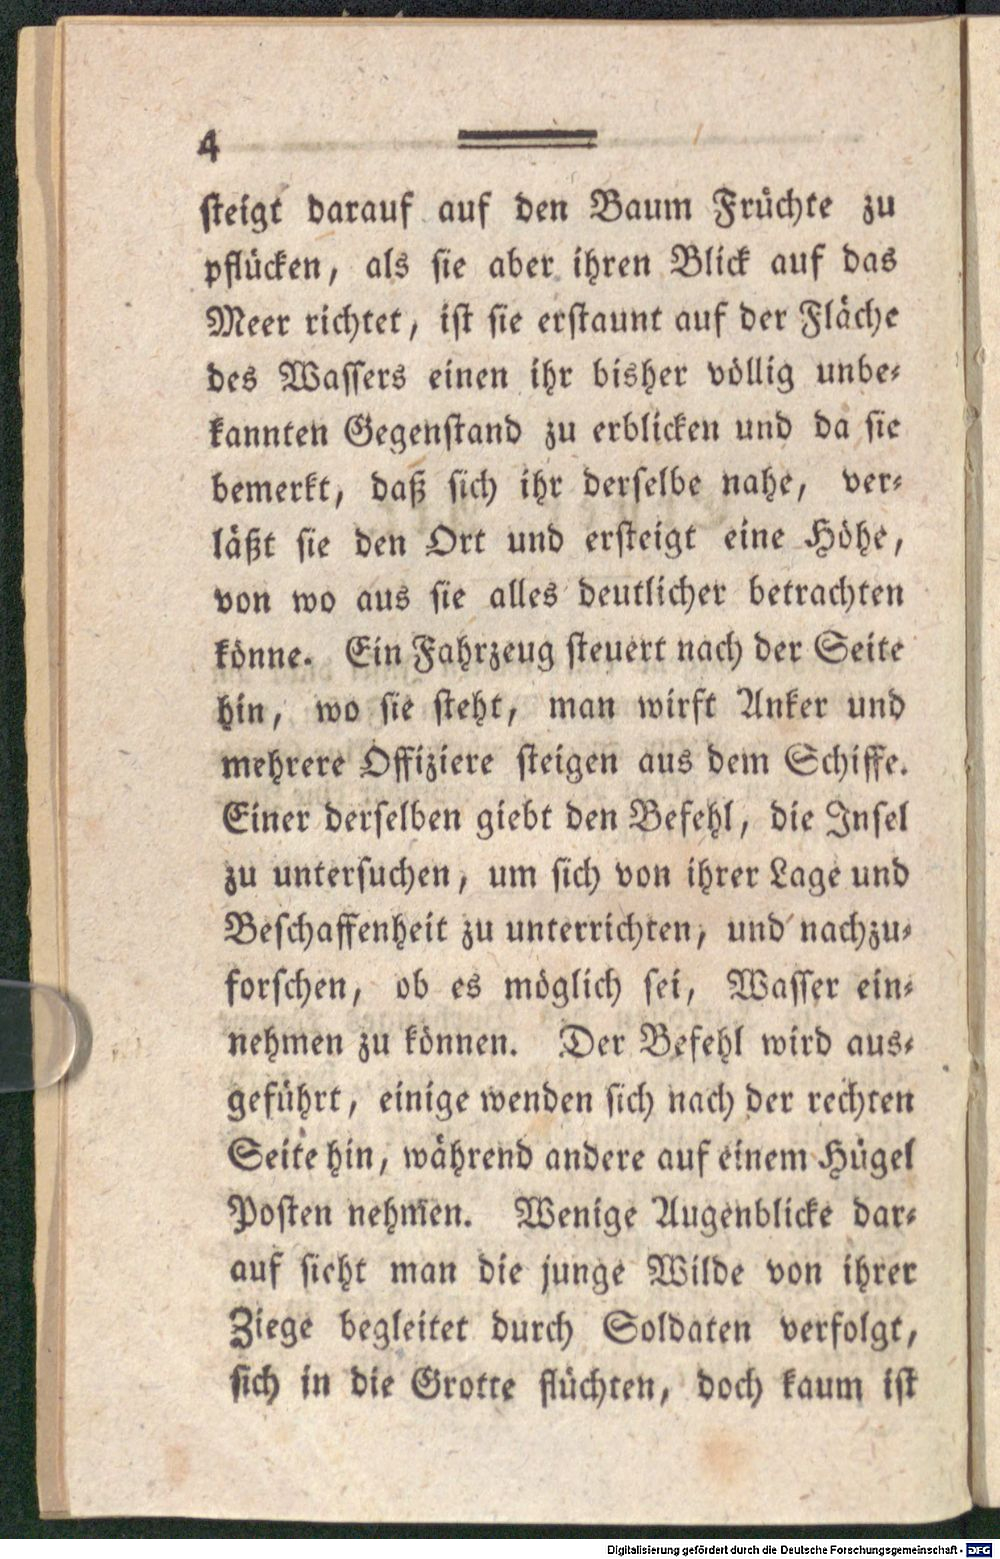 4
steigt darauf auf den Baum Früchte zu
pflücken, als sie aber ihren Blick auf das
Meer richtet, ist sie erstaunt auf der Fläche
des Wassers einen ihr bisher völlig unbe-
kannten Gegenstand zu erblicken und da sie
bemerkt, daß sich ihr derselbe nahe, ver-
läßt sie den Ort und ersteigt eine Höhe,
von wo aus sie alles deutlicher betrachten
könne. Ein Fahrzeug steuert nach der Seite
hin, wo sie steht, man wirft Anker und
mehrere Offiziere steigen aus dem Schiffe.
Einer derselben giebt den Befehl, die Insel
zu untersuchen, um sich von ihrer Lage und
Beschaffenheit zu unterrichten, und nachzu-
forschen, ob es möglich sei, Wasser ein-
nehmen zu können. Der Befehl wird aus-
geführt, einige wenden sich nach der rechten
Seite hin, während andere auf einem Hügel
Posten nehmen. Wenige Augenblicke dar-
auf sieht man die junge Wilde von ihrer
Ziege begleitet durch Soldaten verfolgt,
sich in die Grotte flüchten, doch kaum ist
Digitalisierung gefördert durch die Deutsche Forschungsgemeinschaft - DFG